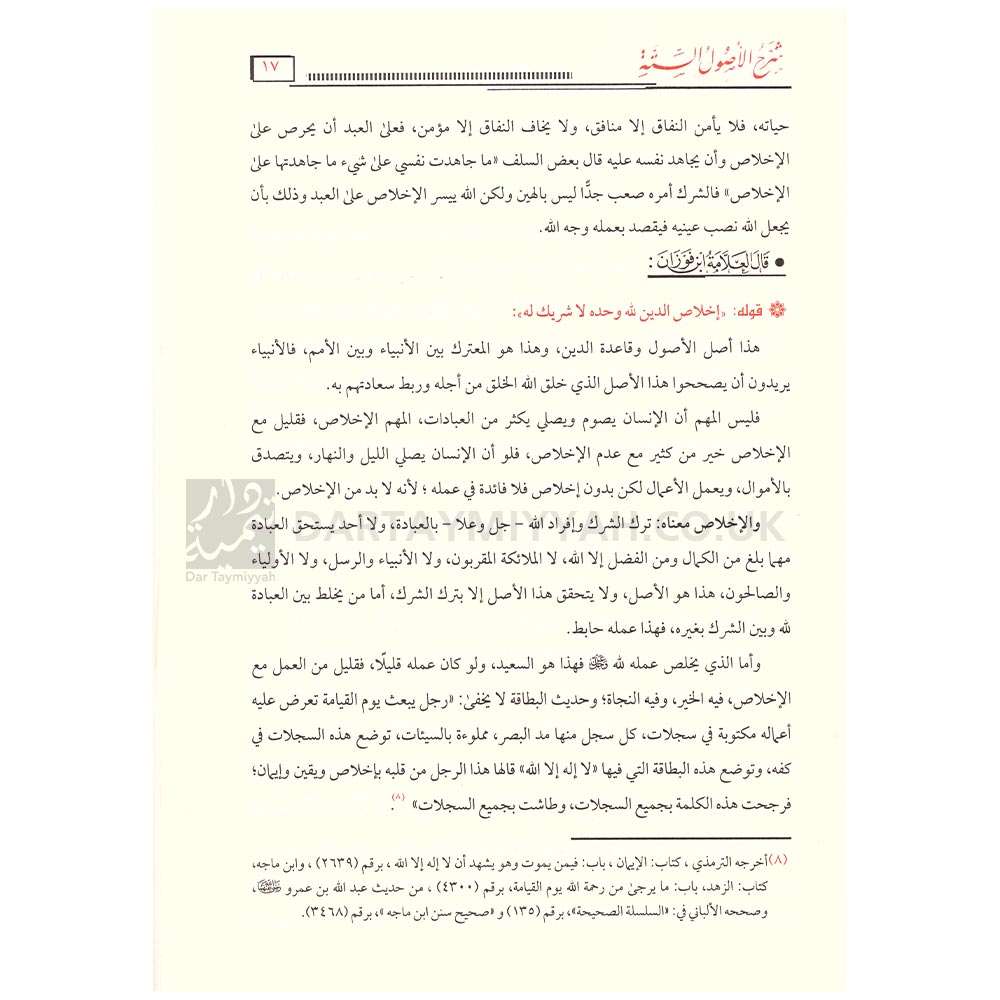 شرح الأصول الستة
١٧
حياته، فلا يأمن النفاق إلا منافق، ولا يخاف النفاق إلا مؤمن، فعلى العبد أن يحرص على
الإخلاص وأن يجاهد نفسه عليه قال بعض السلف «ما جاهدت نفسي على شيء ما جاهدتها على
الإخلاص» فالشرك أمره صعب جدًّا ليس بالهين ولكن الله ييسر الإخلاص على العبد وذلك بأن
يجعل الله نصب عينيه فيقصد بعمله وجه الله.
● قال العلامة ابن فوزان:
قوله: «إخلاص الدين لله وحده لا شريك له»:
هذا أصل الأصول وقاعدة الدين، وهذا هو المعترك بين الأنبياء وبين الأمم، فالأنبياء
يريدون أن يصححوا هذا الأصل الذي خلق الله الخلق من أجله وربط سعادتهم به.
فليس المهم أن الإنسان يصوم ويصلي يكثر من العبادات، المهم الإخلاص، فقليل مع
الإخلاص خير من كثير مع عدم الإخلاص، فلو أن الإنسان يصلي الليل والنهار، ويتصدق
بالأموال، ويعمل الأعمال لكن بدون إخلاص فلا فائدة في عمله ؛ لأنه لا بد من الإخلاص.
والإخلاص معناه: ترك الشرك وإفراد الله – جل وعلا – بالعبادة، ولا أحد يستحق العبادة
مهما بلغ من الكمال ومن الفضل إلا الله، لا الملائكة المقربون، ولا الأنبياء والرسل، ولا الأولياء
والصالحون، هذا هو الأصل، ولا يتحقق هذا الأصل إلا بترك الشرك، أما من يخلط بين العبادة
لله وبين الشرك بغيره، فهذا عمله حابط.
وأما الذي يخلص عمله لله ﷿ فهذا هو السعيد، ولو كان عمله قليلًا، فقليل من العمل مع
الإخلاص، فيه الخير، وفيه النجاة؛ وحديث البطاقة لا يخفى: «رجل يبعث يوم القيامة تعرض عليه
أعماله مكتوبة في سجلات، كل سجل منها مد البصر، مملوءة بالسيئات، توضع هذه السجلات في
كفه، وتوضع هذه البطاقة التي فيها «لا إله إلا الله» قالها هذا الرجل من قلبه بإخلاص ويقين وإيمان؛
فرجحت هذه الكلمة بجميع السجلات، وطاشت بجميع السجلات» (٨).
(٨) أخرجه الترمذي ، كتاب: الإيمان ، باب: فيمن يموت وهو يشهد أن لا إله إلا الله ، برقم (٢٦٣٩) ، وابن ماجه،
كتاب: الزهد، باب: ما يرجى من رحمة الله يوم القيامة، برقم (٤٣٠٠) ، من حديث عبد الله بن عمرو رضي الله عنهما ،
وصححه الألباني في: «السلسلة الصحيحة»، برقم (١٣٥) و «صحيح سنن ابن ماجه »، برقم (٣٤٦٨).
دار تيمية
Dar Taymiyyah
DARTAYMIYYAH.CO.UK